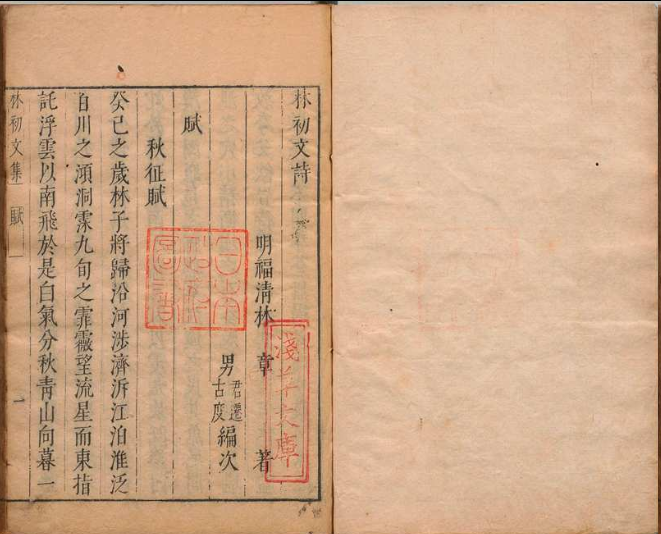 林初文詩
明福清林 章 著
男 君遷 古度 編次
賦
秋征賦
癸巳之歲林子將歸沿河涉濟泝江泊淮泛
百川之澒洞霂九旬之霏霺望流星而東指
託浮雲以南飛於是白氣分秋青山向暮一
林初文集 賦 一
淺草文庫